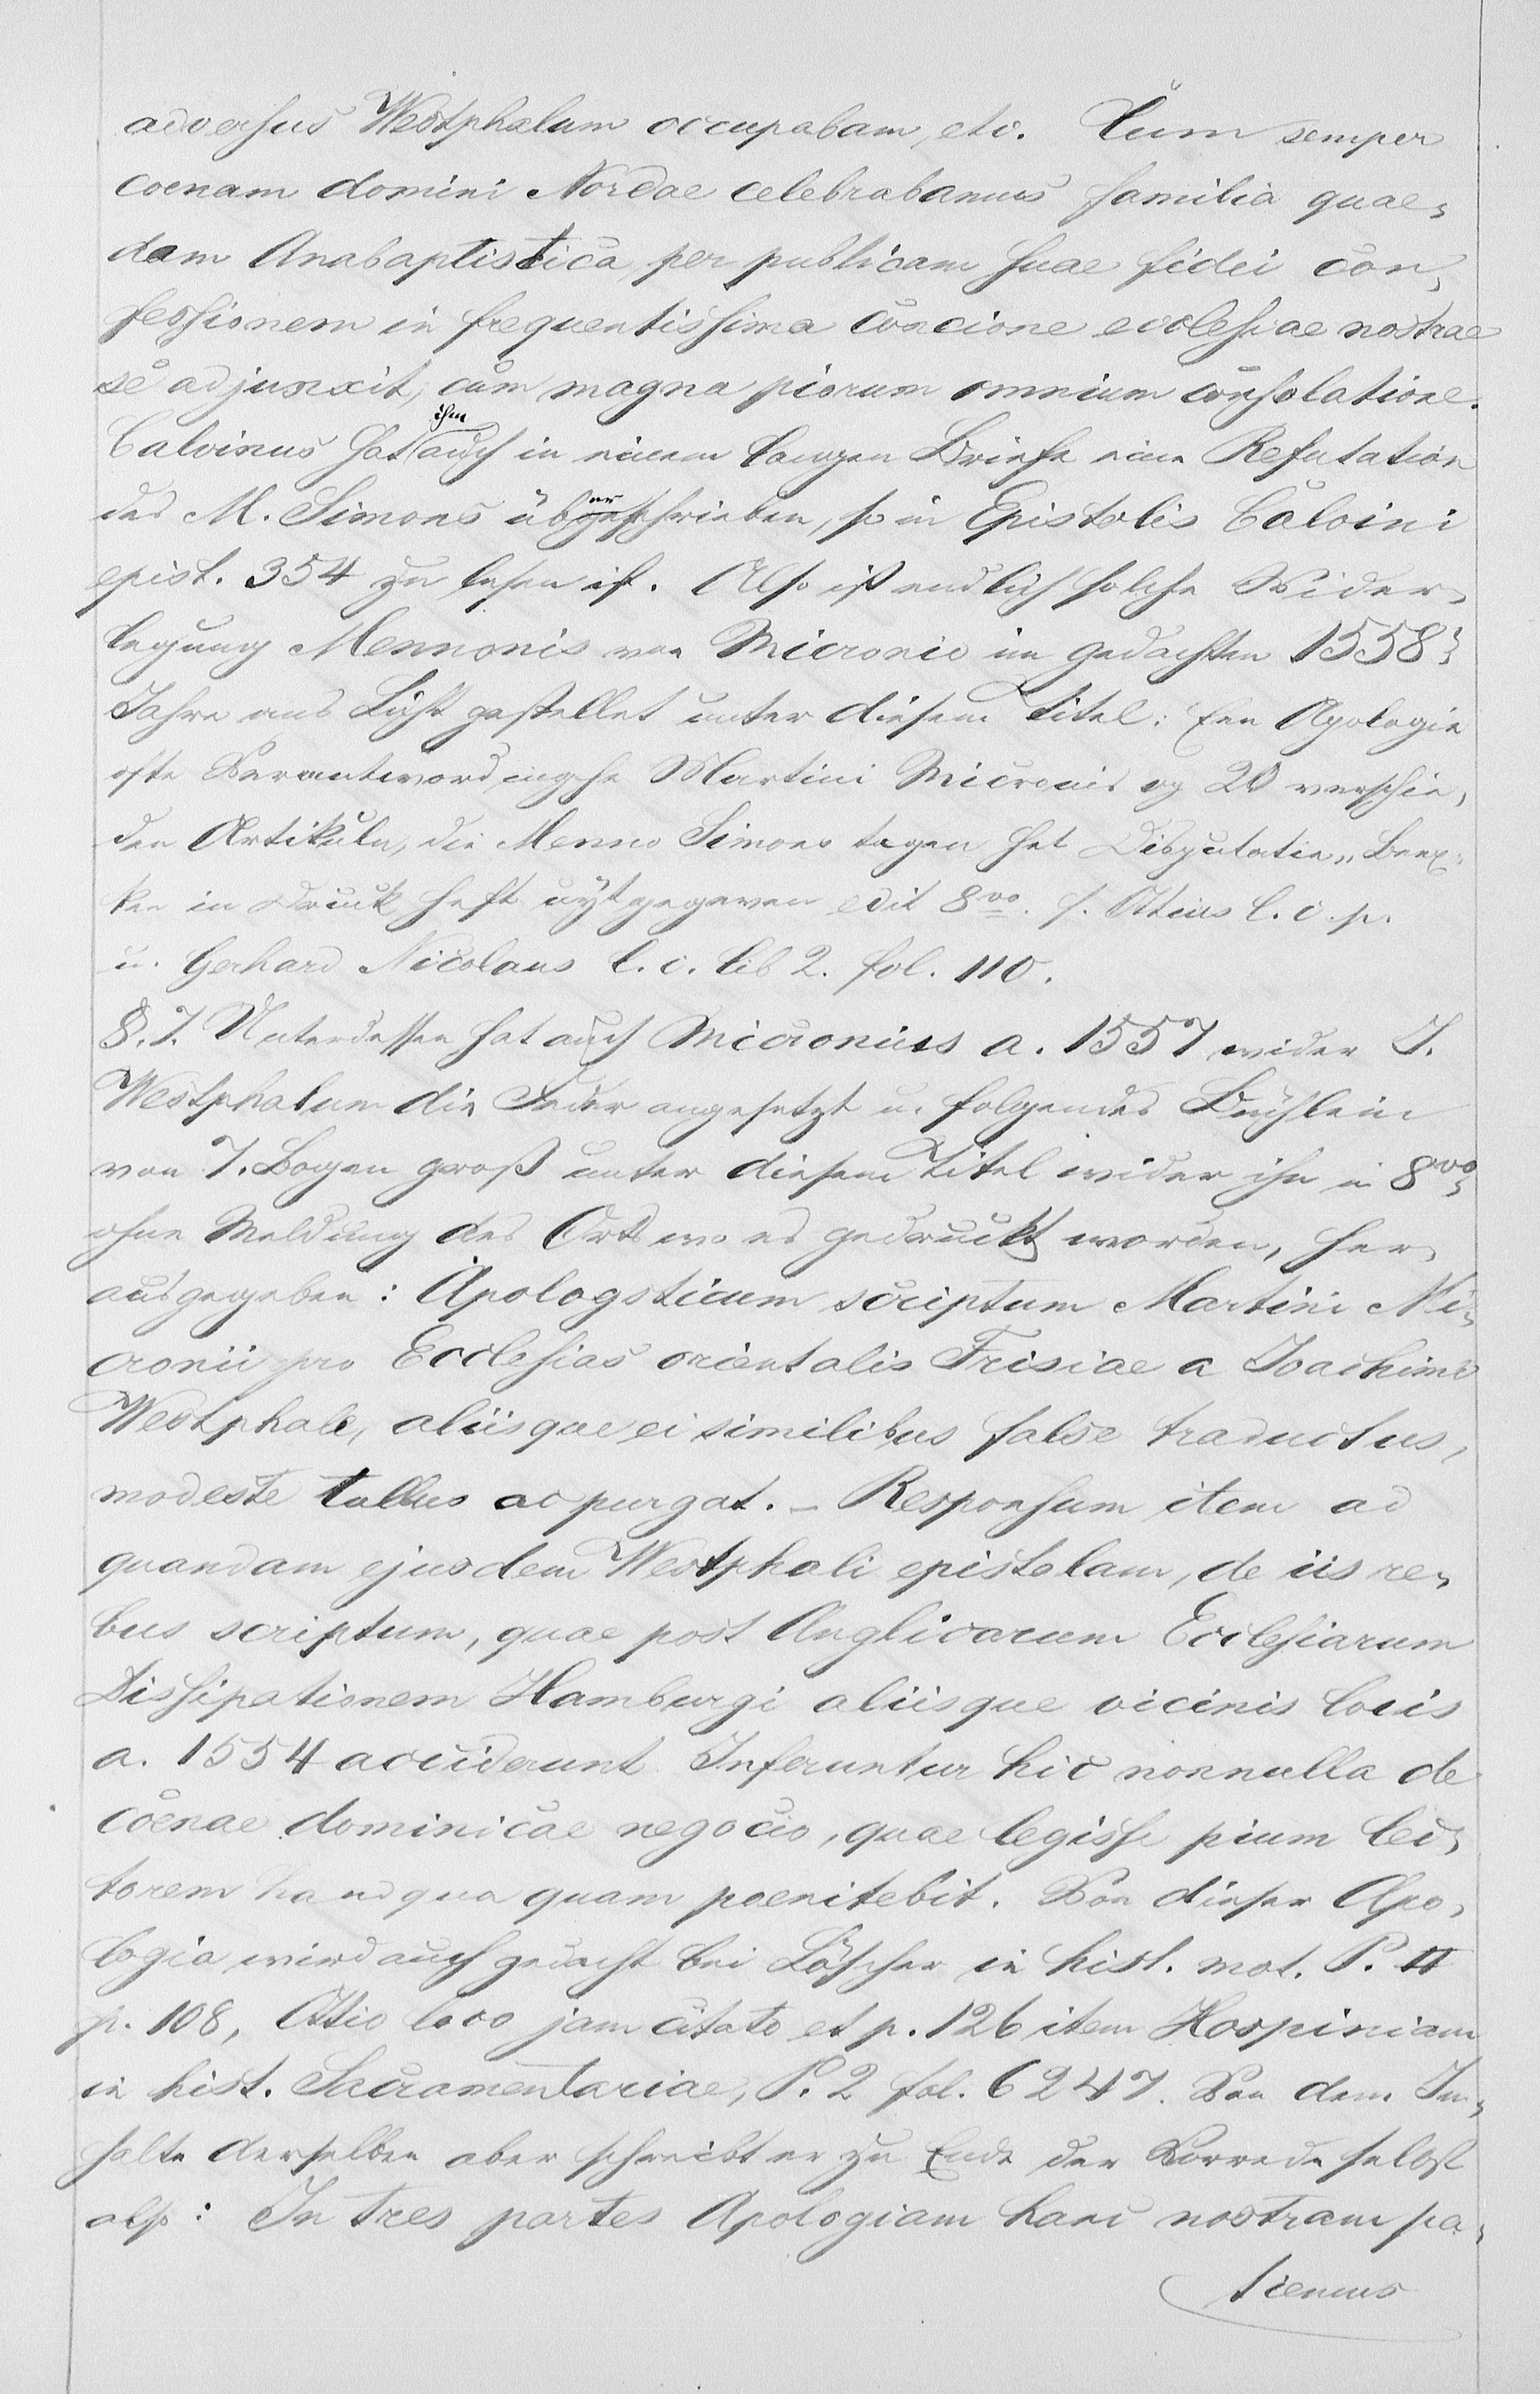 adversus Westphalum occupabam, etc. Cum semper
coenam domini Nordae celebrabamus familia quae-
dam Anabaptistica, per publicam suae fidei con-
fessionem in frequentissima concione ecclesiae nostrae
se adjunxit, cum magna piorum omnium consolatione.
Calvinus hat ihm auch in einem langen Briefe eine Refutation
des M. Simons überschrieben, so in Epistolis Calvini
epist. 354 zu lesen ist. Also ist endlich solche Wider-
legung Mennonis von Micronio im gedachten 1558.
Jahre ans Licht gestellet unter diesem Titel: Een Apologie
ofte Verantwordinghe Martini Micronii op 20 verschie-
den Artikuln, die Menno Simons tegen het Disputatie-Boex-
ken in Druck heft uytgegeven edit 8vo. f. Utius l. c. p.
u. Gerhard Nicolaus l. c. lib 2. fol. 110.
§. 7. Unterdessen hat auch Micronius a. 1557 wider J.
Westphalum die Feder angesetzt u. folgendes Büchlein
von 7. Bogen groß unter diesem Titel wider ihn in 8vo
ohne Meldung des Orts wo es gedruckt worden, her-
ausgegeben: Apologeticum scriptum Martini Mi-
cronii pro Ecclesias orientalis Frisiae a Joachimo
Westphalo, aliisque ei similibus false traductus,
modeste tallus ac purgat. - Responsum item ad
quandam ejusdem Westphali epistolam, de iis re-
bus scriptum, quae post Anglicarum Ecclesiarum
Dissipationem Hamburgi aliisque vicinis locis
a. 1554 acciderunt Inseruntur hic nonnulla de
coenae dominicae negocio, quae legisse pium lec-
torem haudqua quam poenitebit. Von dieser Apo-
logia wird auch gedacht bei Löscher in hist. mot. P. II
p. 108, Utio loco jam citato et p. 126 item Hospiniam
in hist. Sacramentariae, P. 2 fol. 6247. Von dem In-
halte derselben aber schreibt er zu Ende der Vorrede selbst
also: In tres partes Apologiam hanc nostram pa-
tiemus